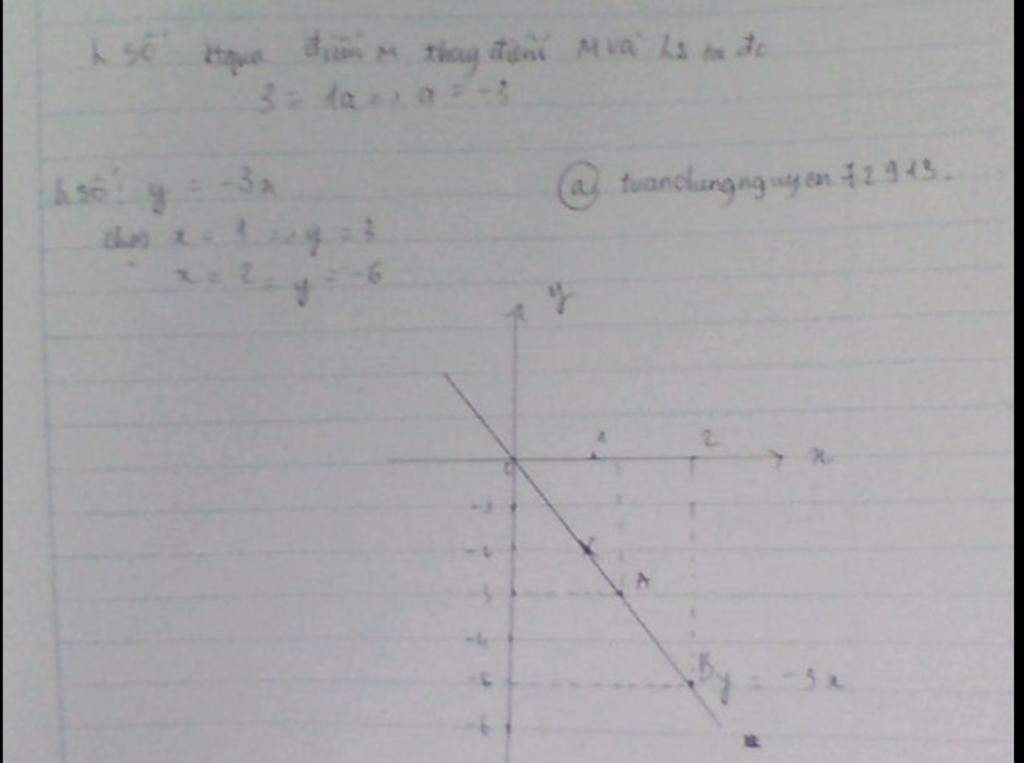 h số đi qua điểm M thay điểm M và hs ta đc
3 = 1a => a = -3
h số: y = -3x
@ tuandungnguyen72913.
chọn x = 1 => y = 3
x = 2 = y = -6
y
1 2 x
0
-2
A
-4
B y = -3x
-6